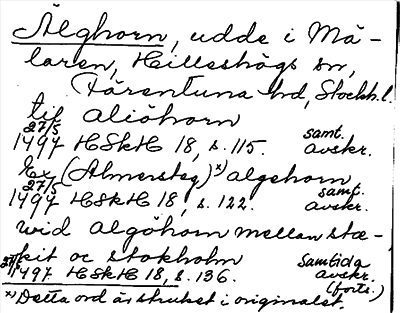 Älghorn, udde i Mä-
laren, Hilleshögs sn,
Färentuna hd, Stockh.l.
til aliöhorn
27/5 1497 HSkH 18, s. 115. samt. avskr.
Ex (Almersteg) x) algehorn
27/5 1497 HSkH 18, s. 122. samt. avskr.
wid algöhorn mellan stæ-
kit oc stokholm
27/5 1497 HSkH 18, s. 136. samtida avskr. (forts.)
x) Detta ord är struket i originalet.